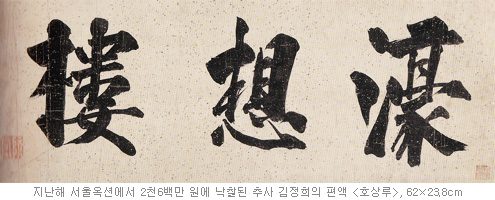 濠想樓
지난해 서울옥션에서 2천6백만 원에 낙찰된 추사 김정희의 편액 <호상루>, 62×23.8cm